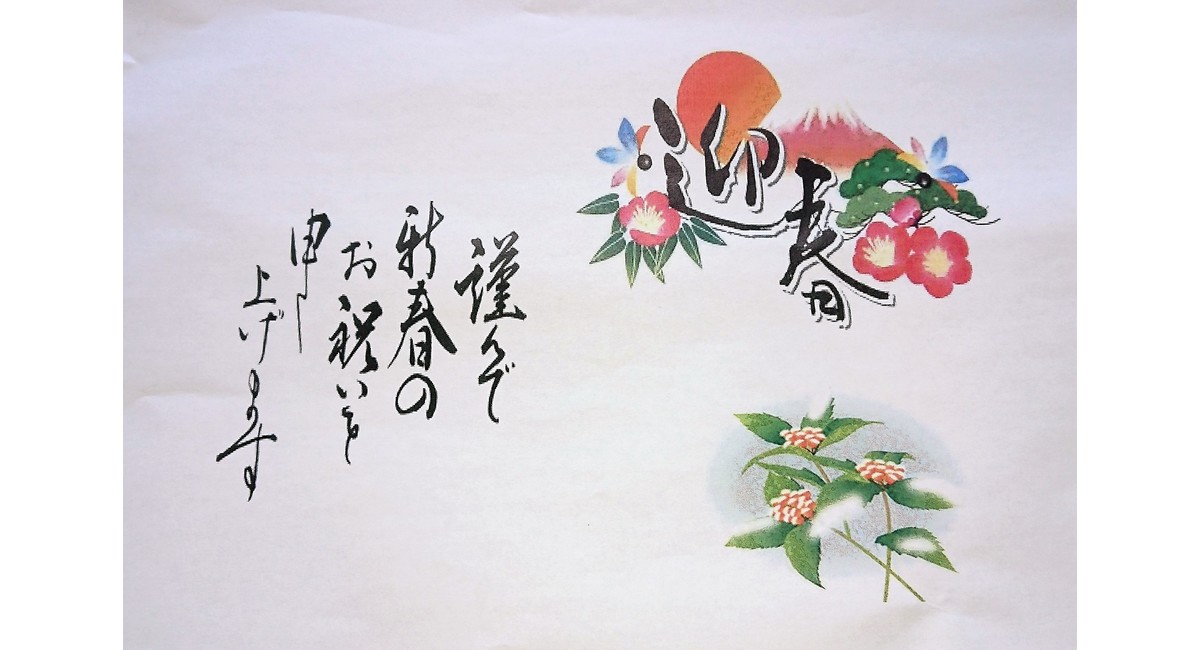 迎春
謹んで
新春の
お祝いを
申し
上げます